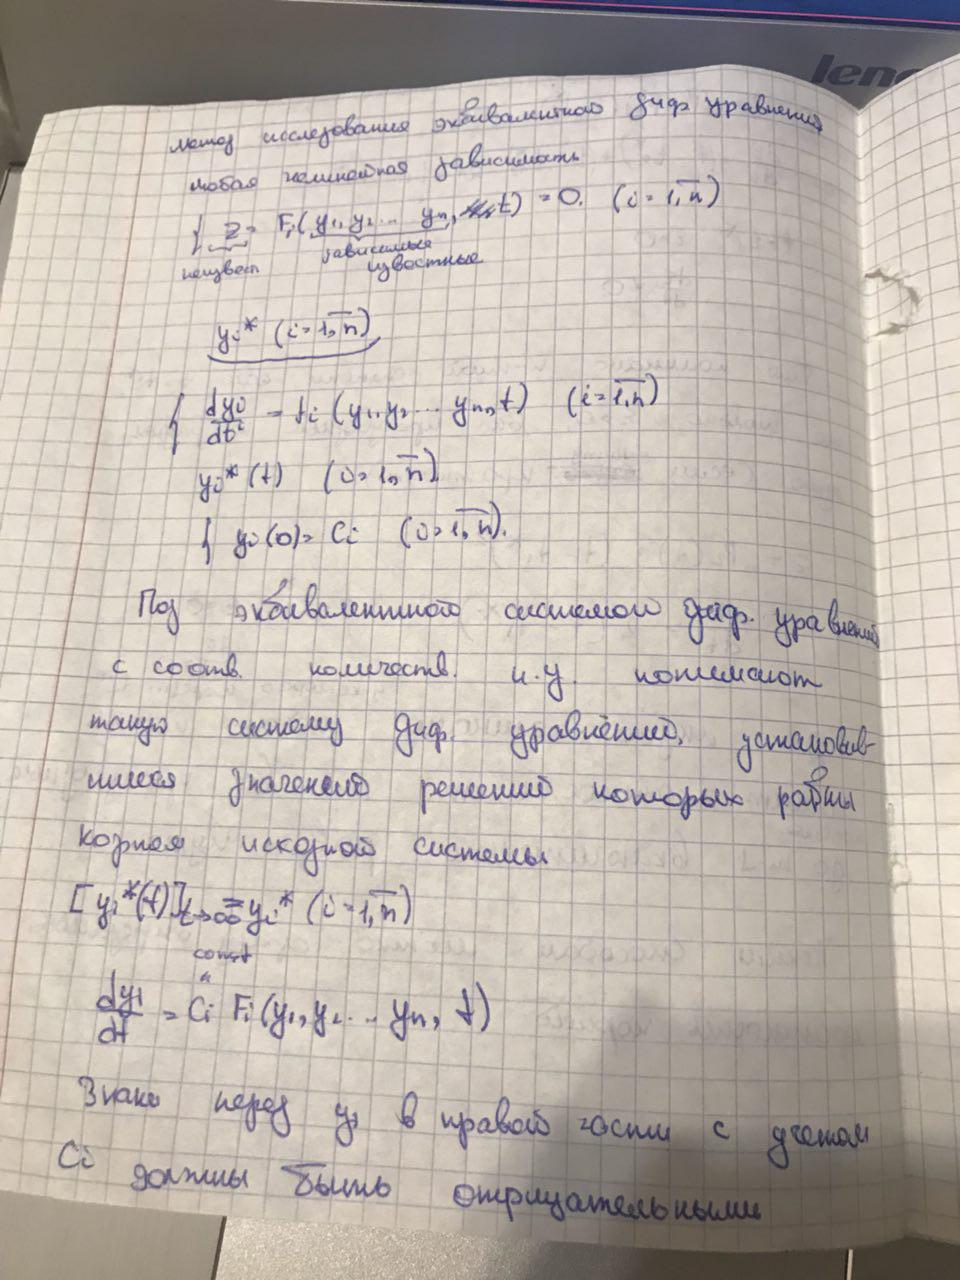 leno
метод исследования эквивалентного диф. уравнения
любая нелинейная зависимость
{ z = Fi(y₁, y₂... yn, t) = 0. (i = 1, n̅)
неизвест зависимые
известные
yi* (i = 1, n̅)
{ dyi/dt² = fi (y₁, y₂ ... yn, t) (i = 1, n̅)
yi* (t) (i = 1, n̅)
{ yi(0) = Ci (i = 1, n̅).
Под эквивалентного системой диф. уравнений
с соотв. количеств. н.у. понимают
такую систему диф. уравнений, установив-
шиеся значений решений которых равны
корням исходной системы
[yi*(t)]t→∞ = yi* (i = 1, n̅)
const
dy₁/dt = Ci Fi (y₁, y₂ ... yn, t)
Знаки перед yi в правой части с учетом
Ci должны быть отрицательными